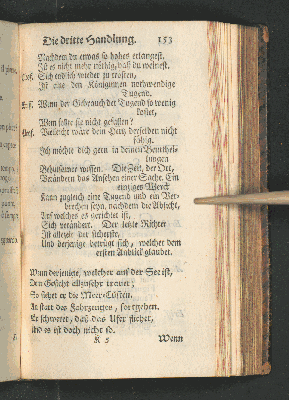 Die dritte Handlung. 153
Nachdem du etwas so hohes erlangest,
Ist es nicht mehr nöthig, daß du weinest.
Sich endlich wieder zu trösten,
Ist eine den Königinnen nothwendige
Tugend.
Wann der Gebrauch der Tugend so wenig
kostet,
Wem solte sie nicht gefallen?
Vielleicht wäre dein Hertz derselben nicht
fähig.
Ich möchte dich gern in deinen Beurtheilungen
Behutsamer wissen. Die Zeit, der Ort,
Verändern das Ansehen einer Sache. Ein
einziges Werck
Kann zugleich eine Tugend und ein Verbrechen
seyn, nachdem die Absicht,
Auf welches es gerichtet ist,
Sich verändert. Der letzte Richter
Ist allezeit der sicherste,
Und derjenige betrügt sich, welcher dem
ersten Anblick glaubet.
Wann derjenige, welcher auf der See ist,
Dem Gesicht allzusehr trauet;
So siehet er die Meer-Cüsten,
An statt des Fahrzeuges, fortgehen.
Er schweret, daß das Ufer fliehet,
Und es ist doch nicht so.
K 5 Wenn